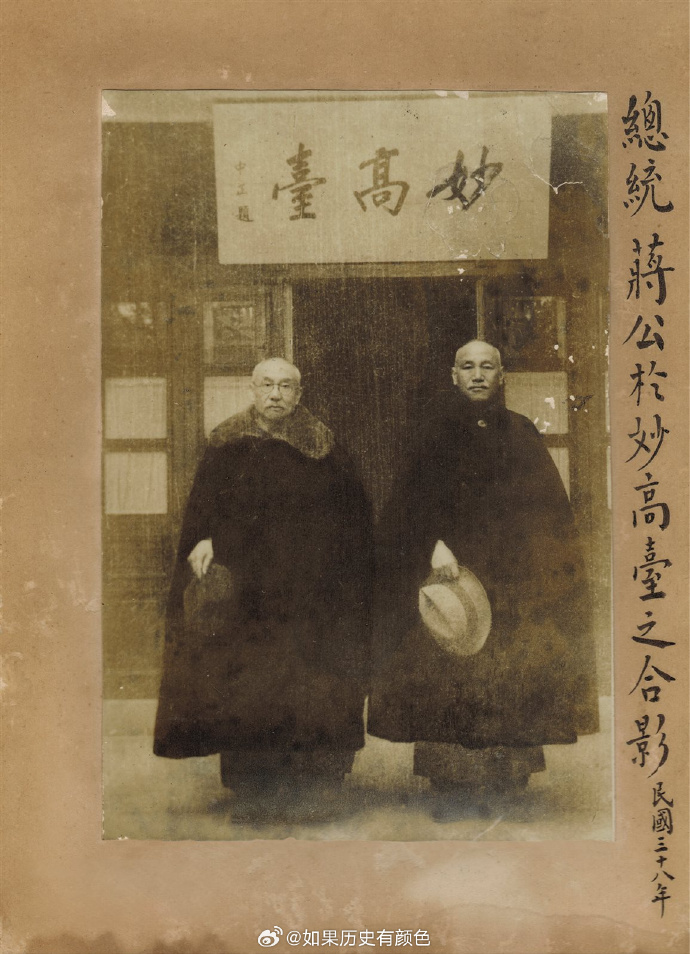 總統 蔣公於妙高臺之合影 民國三十八年
妙高臺
中正題
@如果历史有颜色